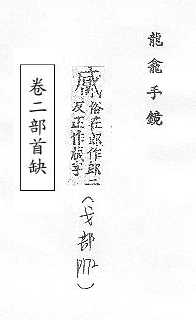 龍龕手鏡
俗在郎作郎二
反正作字
(戈部 P172)
卷二部首缺